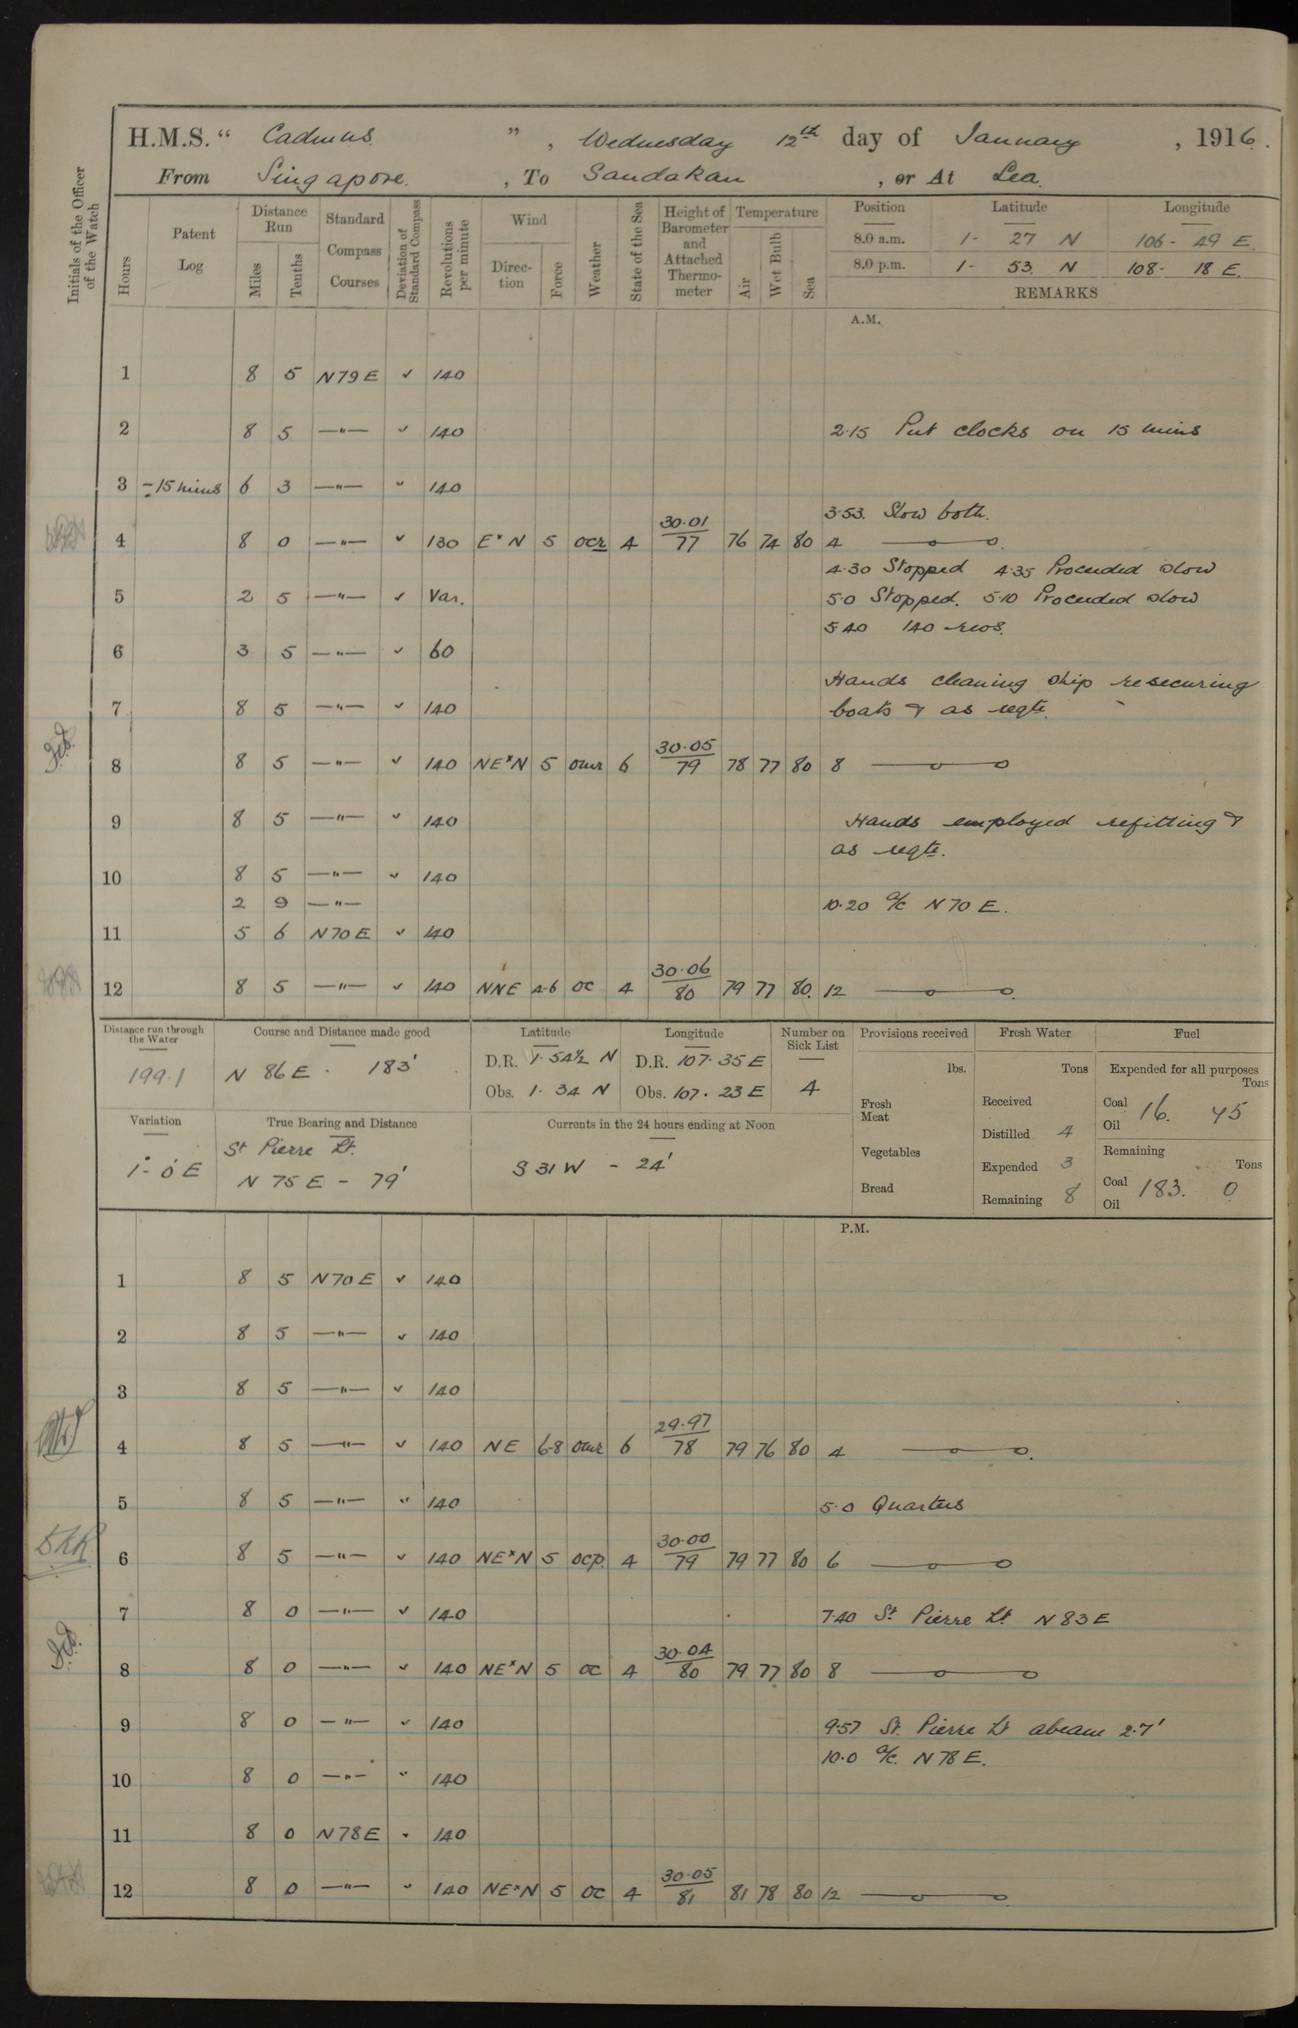 H.M.S. “ Cadmus ” , Wednesday 12th day of January , 1916.
From Singapore , To Sandakan , or At Sea.
Initials of the Officer of the Watch
Hours Patent Log Distance Run Miles Tenths Standard Compass Courses Deviation of Standard Compass Revolutions per minute Wind Direction Force Weather State of the Sea Height of Barometer and Attached Thermometer Temperature Air Wet Bulb Sea Position Latitude Longitude
8.0 a.m. 1- 27 N 106- 49 E.
8.0 p.m. 1- 53. N 108- 18 E.
REMARKS
A.M.
1 8 5 N79E ✓ 140
2 8 5 —"— ✓ 140 2.15 Put clocks on 15 mins
3 -15 mins 6 3 —"— ✓ 140
3.53. Slow both.
4 8 0 —"— ✓ 130 E×N 5 ocr 4 30.01/77 76 74 80 4
4.30 Stopped 4.35 Proceeded slow
5 2 5 —"— ✓ Var. 5.0 Stopped. 5.10 Proceeded slow
5.40 140 revs.
6 3 5 —"— ✓ 60
Hands cleaning ship resecuring
7 8 5 —"— ✓ 140 boats & as reqte.
8 8 5 —"— ✓ 140 NE×N 5 omr 6 30.05/79 78 77 80 8
9 8 5 —"— ✓ 140 Hands employed refitting &
as reqte.
10 8 5 —"— ✓ 140
2 9 —"— 10.20 a/c N70E.
11 5 6 N70E ✓ 140
12 8 5 —"— ✓ 140 NNE 4-6 oc 4 30.06/80 79 77 80. 12
Distance run through the Water Course and Distance made good Latitude Longitude Number on Sick List Provisions received Fresh Water Fuel
199.1 N 86E. 183'
D.R. 1.54½ N D.R. 107.35E
Obs. 1. 34 N Obs. 107. 23 E 4
lbs. Tons Expended for all purposes Tons
Fresh Meat Received Coal 16. 45
Oil
Variation True Bearing and Distance Currents in the 24 hours ending at Noon Distilled 4
1°- 0' E St Pierre Lt.
N 75E - 79' S 31W - 24'
Vegetables Expended 3 Remaining Tons
Bread Remaining 8 Coal 183. 0
Oil
P.M.
1 8 5 N70E ✓ 140
2 8 5 —"— ✓ 140
3 8 5 —"— ✓ 140
4 8 5 —"— ✓ 140 NE 6-8 omr 6 29.97/78 79 76 80 4
5 8 5 —"— " 140 5.0 Quarters
6 8 5 —"— ✓ 140 NE×N 5 ocp. 4 30.00/79 79 77 80 6
7 8 0 —"— ✓ 140 7.40 St. Pierre Lt N83E
8 8 0 —"— ✓ 140 NE×N 5 oc 4 30.04/80 79 77 80 8
9 8 0 —"— ✓ 140 9.57 St. Pierre Lt abeam 2.7'
10.0 a/c. N78E.
10 8 0 —"— " 140
11 8 0 N78E . 140
12 8 0 —"— " 140 NE×N 5 oc 4 30.05/81 81 78 80 12